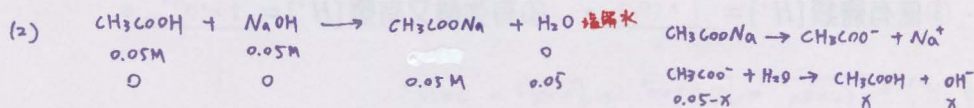 (2) CH3COOH + NaOH → CH3COONa + H2O 塩解水
0.05M 0.05M 0
0 0 0.05M 0.05
CH3COONa → CH3COO⁻ + Na⁺
CH3COO⁻ + H2O → CH3COOH + OH⁻
0.05-x x x